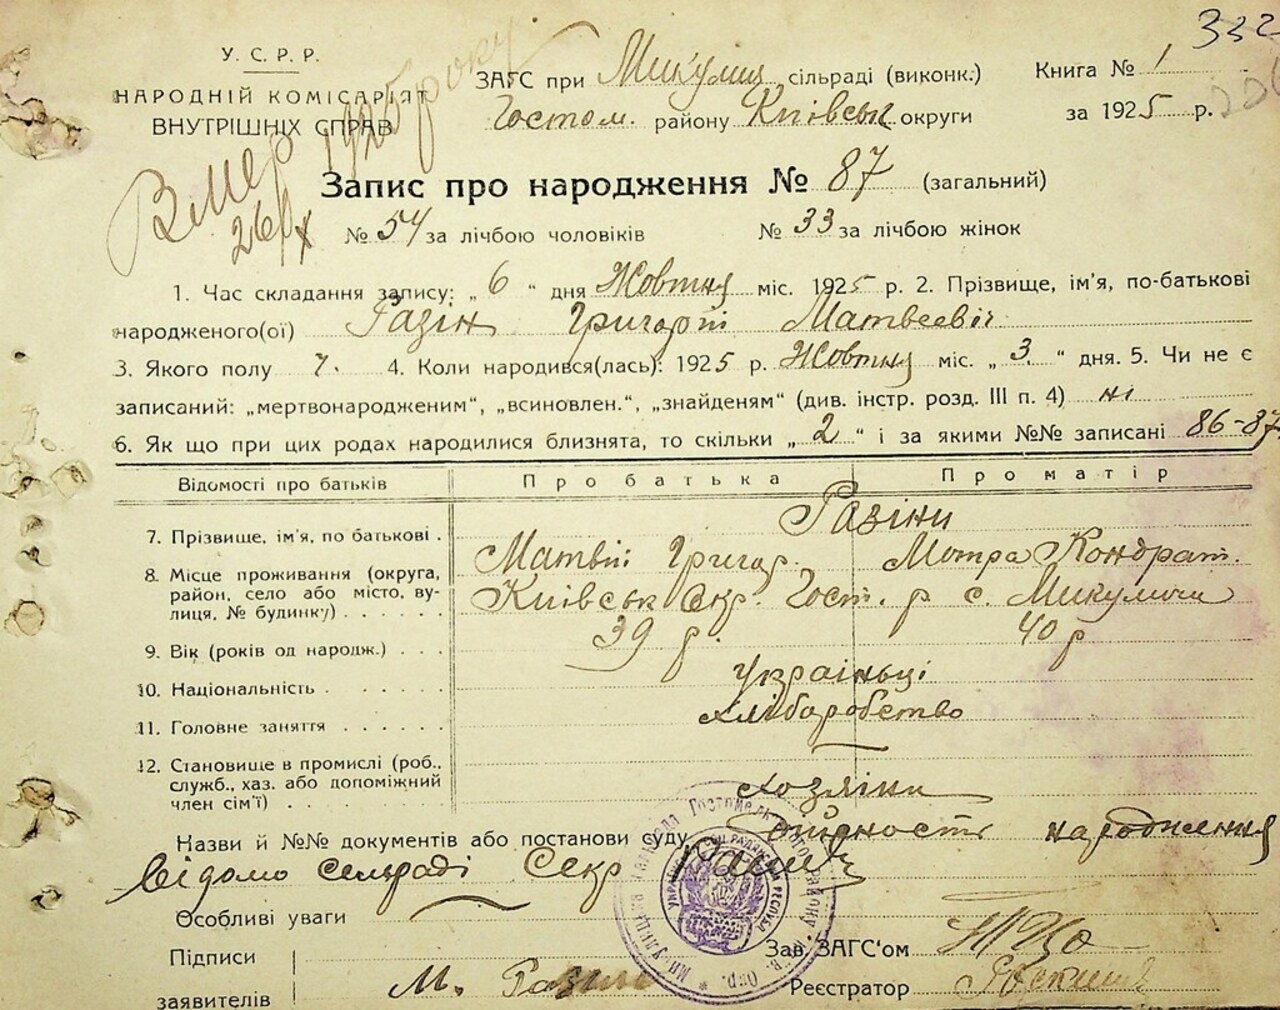 332
У. С. Р. Р.
НАРОДНІЙ КОМІСАРІЯТ
ВНУТРІШНІХ СПРАВ
ЗАГС при Микулич сільраді (виконк.)
Гостом. району Київськ округи
Книга № 1
за 1925 р.
Вмер 26/X 1925 року
Запис про народження № 87 (загальний)
№ 54 за лічбою чоловіків № 33 за лічбою жінок
1. Час складання запису: „ 6 “ дня Жовтня міс. 1925 р. 2. Прізвище, ім'я, по-батькові
народженого(ої) Разін Григорій Матвеєвіч
3. Якого полу ч. 4. Коли народився(лась): 1925 р. Жовтня міс. „ 3. “ дня. 5. Чи не є
записаний: „мертвонародженим“, „всиновлен.“, „знайденям“ (див. інстр. розд. III п. 4) ні
6. Як що при цих родах народилися близнята, то скільки „ 2 “ і за якими №№ записані 86-87
Відомості про батьків Про батька Про матір
Разіни
7. Прізвище, ім'я, по батькові . Матвій Григор. Мотра Кондрат.
8. Місце проживання (округа, район, село або місто, вулиця, № будинку) Київськ Окр. Гост. р с. Микуличи
9. Вік (років од народж.) 39 р. 40 р
10. Національність україньці
11. Головне заняття хлібаробство
12. Становище в промислі (роб., служб., хаз. або допоміжний член сім'ї) хозяіни
Назви й №№ документів або постанови суду дійсность народження
відомо сельраді Секр
Особливі уваги
Зав. ЗАГС'ом
Підписи
заявителів М. Разін
Реєстратор